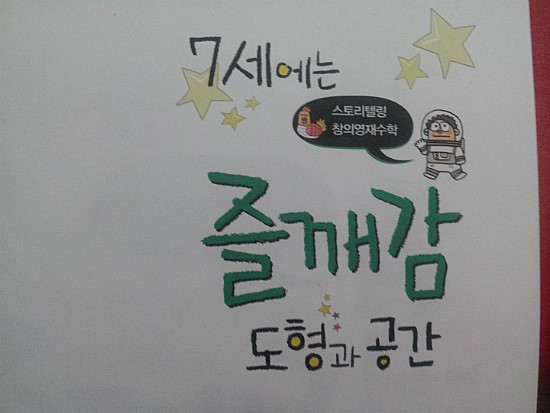 7세에는
스토리텔링
창의영재수학
즐깨감
도형과 공간